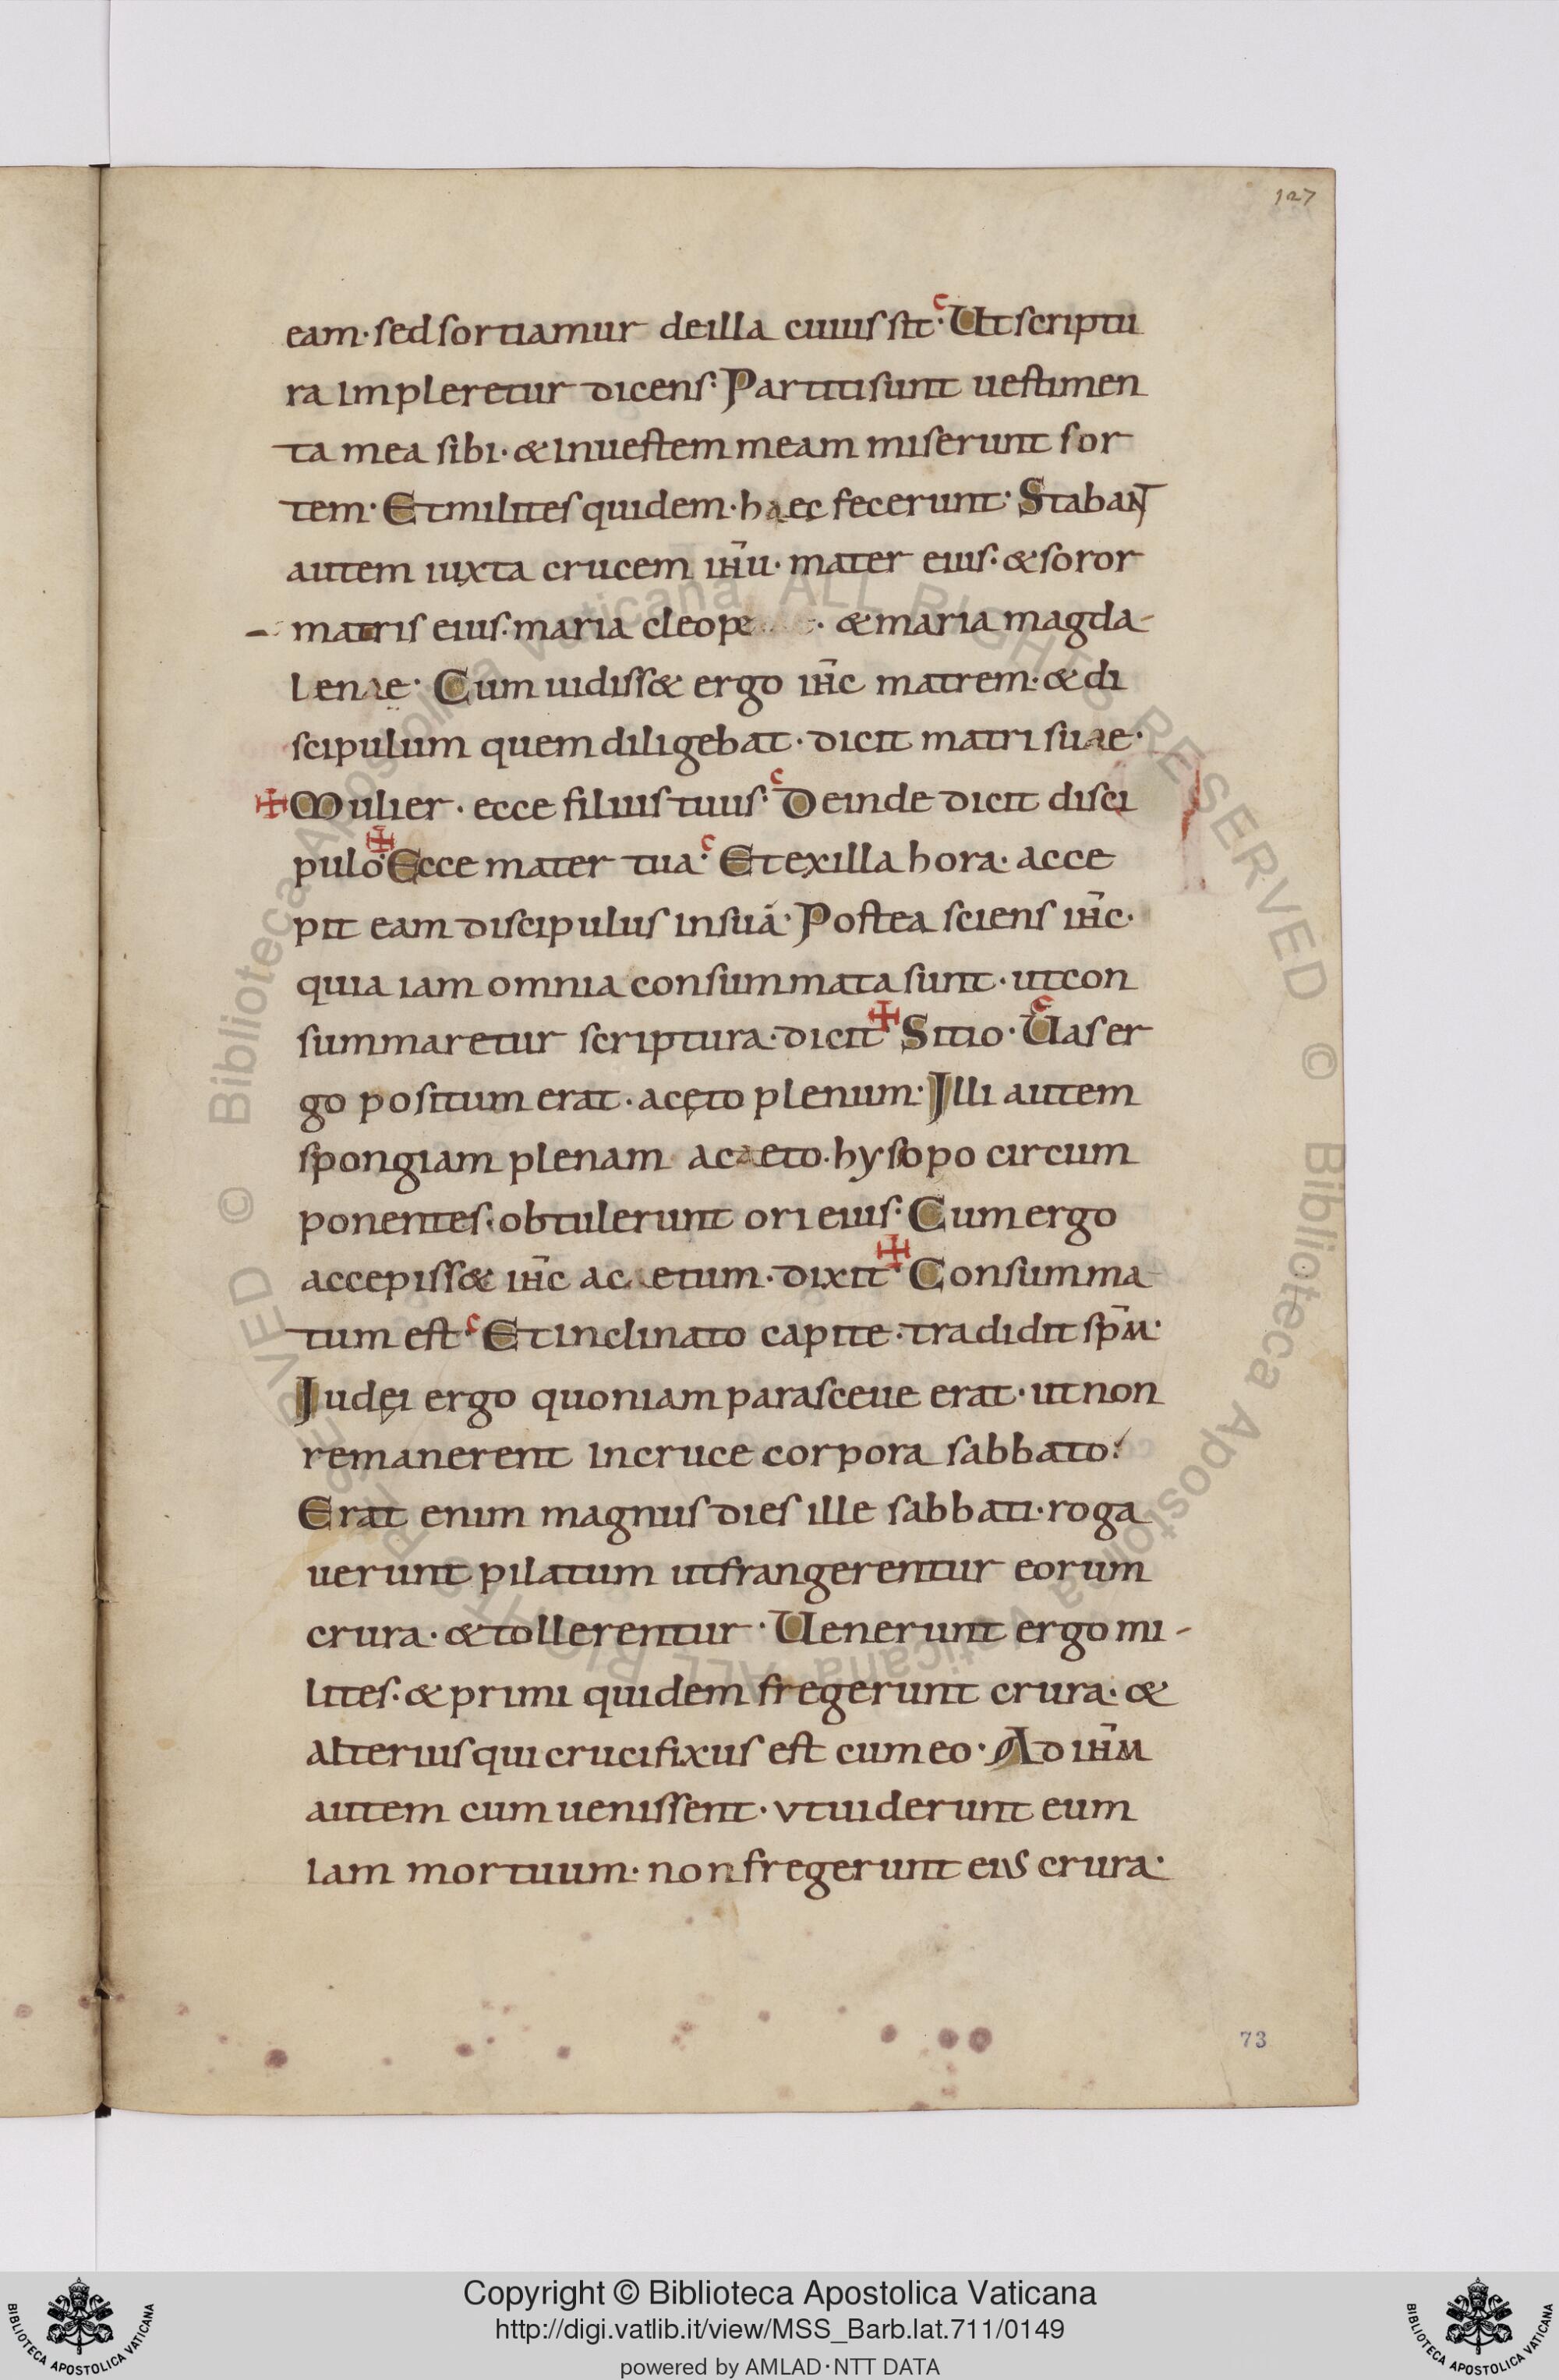 127
eam· sed sortiamur de illa cuius sit· c Ut scriptu
ra impleretur dicens: Partiti sunt uestimen
ta mea sibi· & in uestem meam miserunt sor
tem· Et milites quidem· haec fecerunt· Stabant
autem iuxta crucem ih̄u· mater eius· & soror
matris eius· maria cleope · & maria magda-
lenae· Cum uidiss& ergo ih̄c matrem· & di
scipulum quem diligebat· dicit matri suae·
✠ Mulier· ecce filius tuus· c Deinde dicit disci
pulo· ✠ Ecce mater tua· c Et ex illa hora· acce
pit eam discipulus in suā· Postea sciens ih̄c·
quia iam omnia consummata sunt· ut con
summaretur scriptura· dicit ✠ Sitio· c Uas er
go positum erat· acęto plenum· Illi autem
spongiam plenam acaeto· hysopo circum
ponentes· obtulerunt ori eius· Cum ergo
accepiss& ih̄c acaetum· dixit ✠ Consumma
tum est· c Et inclinato capite· tradidit sp̄m·
Iudęi ergo quoniam parasceue erat· ut non
remanerent in cruce corpora sabbato·
Erat enim magnus dies ille sabbati· roga
uerunt pilatum ut frangerentur eorum
crura· & tollerentur· Uenerunt ergo mi-
lites· & primi quidem fregerunt crura· &
alterius qui crucifixus est cum eo· Ad ih̄m
autem cum uenissent· vt uiderunt eum
iam mortuum· non fregerunt eius crura·
73
© Biblioteca Apostolica Vaticana ALL RIGHTS RESERVED
© Biblioteca Apostolica Vaticana ALL RIGHTS RESERVED
Copyright © Biblioteca Apostolica Vaticana
http://digi.vatlib.it/view/MSS_Barb.lat.711/0149
powered by AMLAD·NTT DATA
BIBLIOTECA APOSTOLICA VATICANA
BIBLIOTECA APOSTOLICA VATICANA